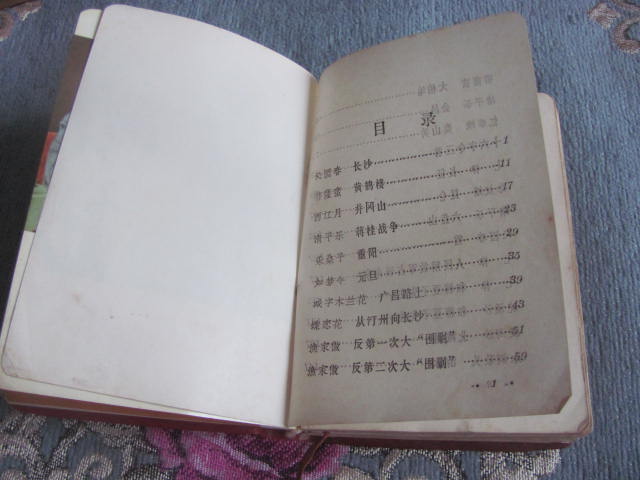 目 录
沁园春 长沙……1
菩萨蛮 黄鹤楼……11
西江月 井冈山……17
清平乐 蒋桂战争……23
采桑子 重阳……29
如梦令 元旦……35
减字木兰花 广昌路上……39
蝶恋花 从汀州向长沙……43
渔家傲 反第一次大“围剿”……51
渔家傲 反第二次大“围剿”……59
1